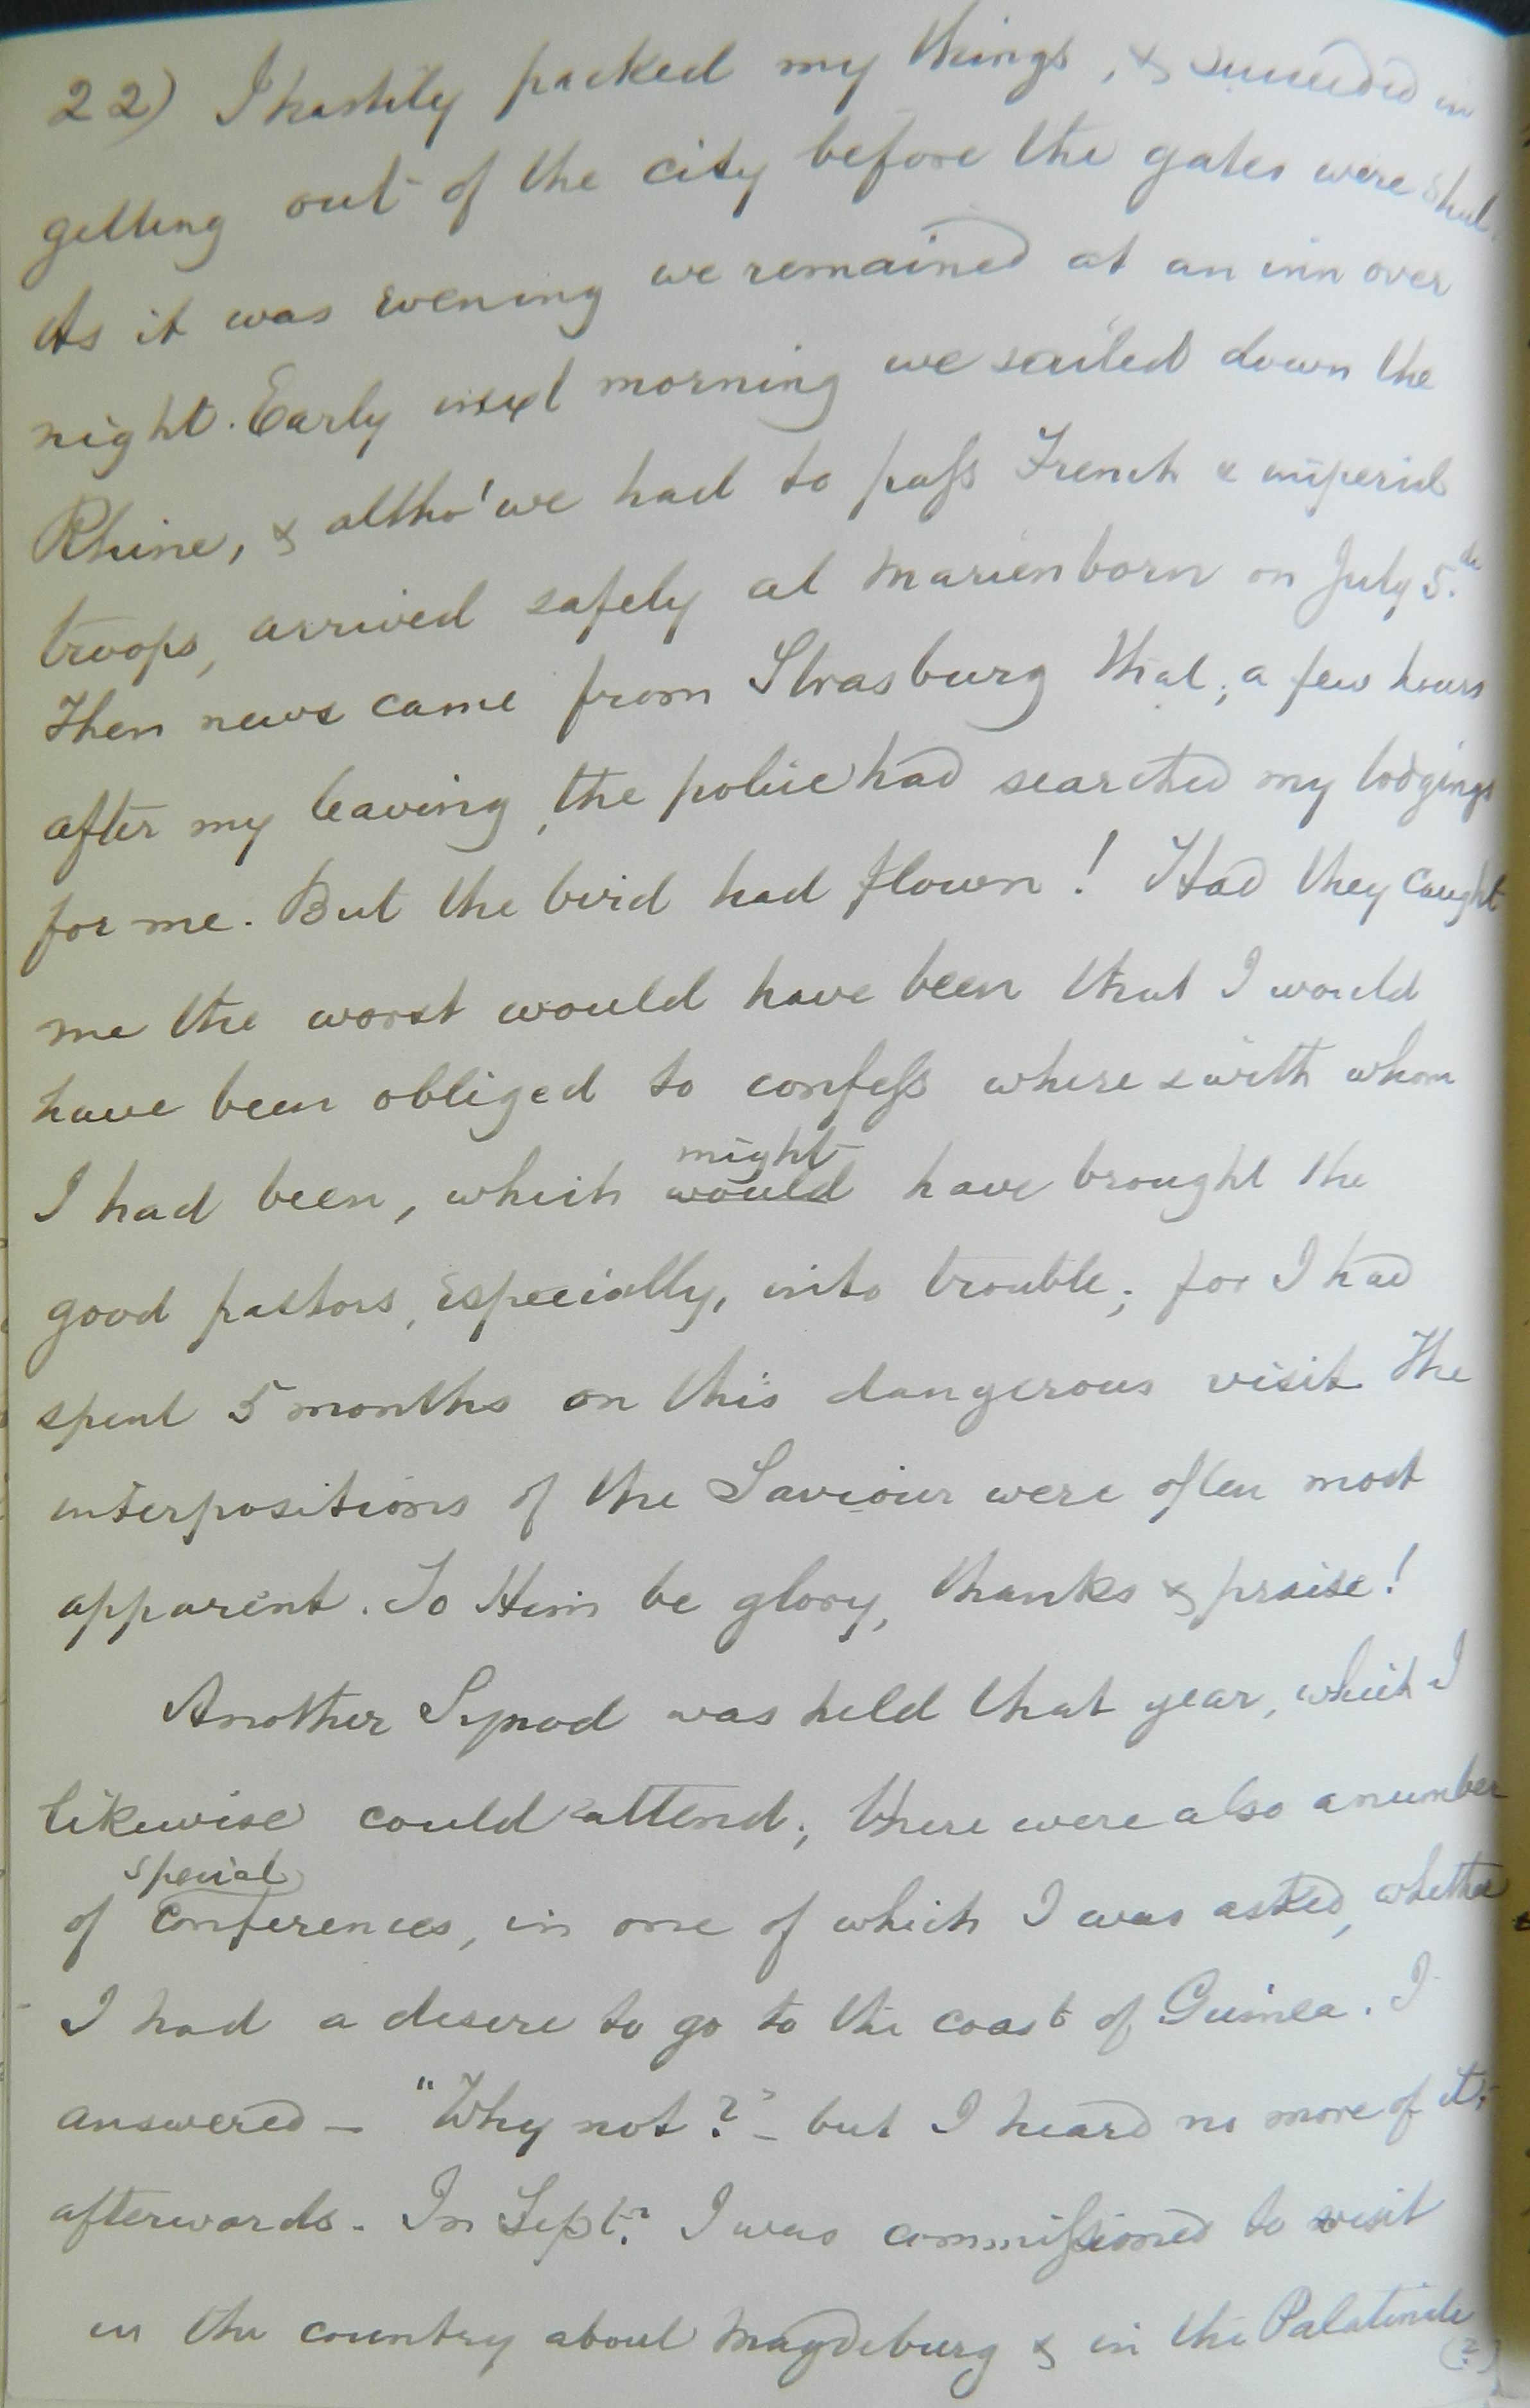 22) I hastily packed my things, & succeeded in
getting out of the city before the gates were shut.
As it was evening we remained at an inn over
night. Early next morning we sailed down the
Rhine, & altho' we had to pass French & imperial
troops, arrived safely at Marienborn on July 5.th
Then news came from Strasburg that, a few hours
after my leaving, the police had searched my lodgings
for me. But the bird had flown! Had they caught
me the worst would have been that I would
have been obliged to confess where & with whom
might
I had been, which would have brought the
good pastors, especially, into trouble; for I had
spent 5 months on this dangerous visit. The
interpositions of the Saviour were often most
apparent. To Him be glory, thanks & praise!
Another Synod was held that year, which I
likewise could attend; there were also a number
special
of conferences, in one of which I was asked, whether
I had a desire to go to the coast of Guinea. I
answered – "Why not?" – but I heard no more of it,
afterwards. In Sept.r I was commissioned to visit
in the country about Magdeburg & in the Palatinate
(?)